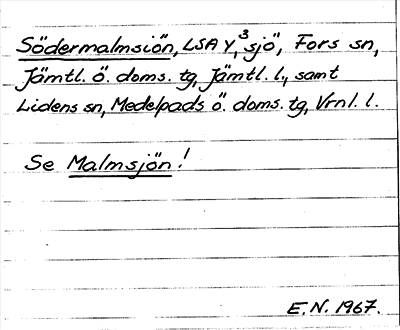 Södermalmsjön, LSA Y, 3 sjö, Fors sn,
Jämtl. ö. doms. tg, Jämtl. l., samt
Lidens sn, Medelpads ö. doms. tg, Vrnl. l.
Se Malmsjön!
E.N. 1967.